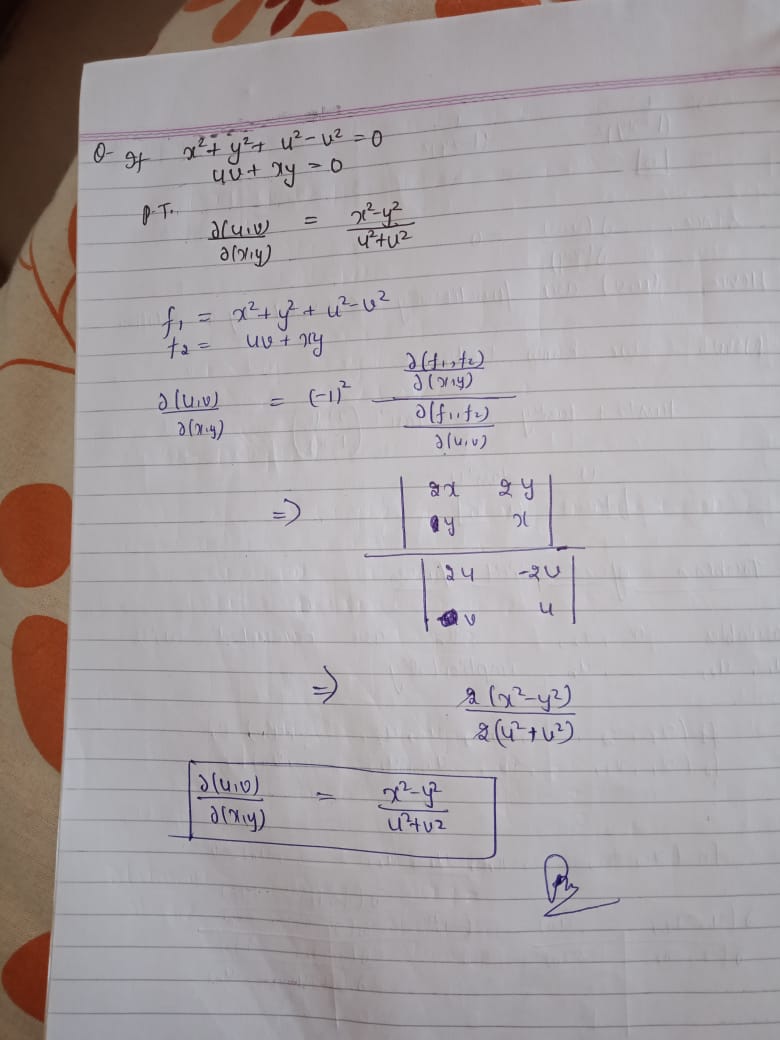 Q- If x²+ y²+ u²-v² = 0
uv + xy = 0
P.T. ∂(u,v)/∂(x,y) = x²-y²/u²+v²
f₁ = x²+y²+u²-v²
f₂ = uv + xy
∂(u,v)/∂(x,y) = (-1)² ∂(f₁,f₂)/∂(x,y) / ∂(f₁,f₂)/∂(u,v)
=> | 2x 2y |
| y x |
| 2u -2v |
| v u |
=> 2(x²-y²)/2(u²+v²)
∂(u,v)/∂(x,y) = x²-y²/u²+v²